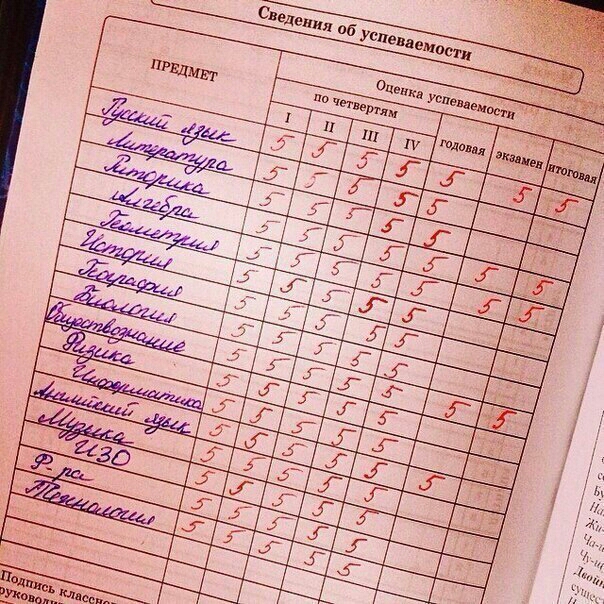 Сведения об успеваемости
ПРЕДМЕТ
Оценка успеваемости
по четвертям
I II III IV годовая экзамен итоговая
Русский язык 5 5 5 5 5 5 5
Литература 5 5 5 5 5
Риторика 5 5 5 5 5
Алгебра 5 5 5 5 5 5 5
Геометрия 5 5 5 5 5 5 5
История 5 5 5 5 5
География 5 5 5 5
Биология 5 5 5 5
Обществознание 5 5 5 5 5 5
Физика 5 5 5 5
Информатика 5 5 5 5
Английский язык 5 5 5 5 5
Музыка 5 5 5 5
ИЗО 5 5 5 5
Ф-ра 5 5 5 5
Технология 5 5 5 5
Подпись классн
руковод
Бу
На
Жи-
Ча-
Чу-щ
Двойн
сущес